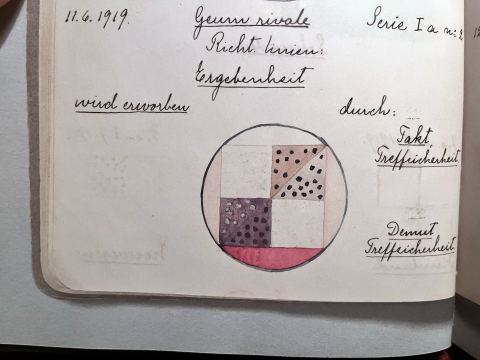 11.6.1919. Geum rivale Serie I a n:
Richt. linien:
Ergebenheit
wird erworben durch:
Takt,
Treffsicherheit
Demut
Treffsicherheit